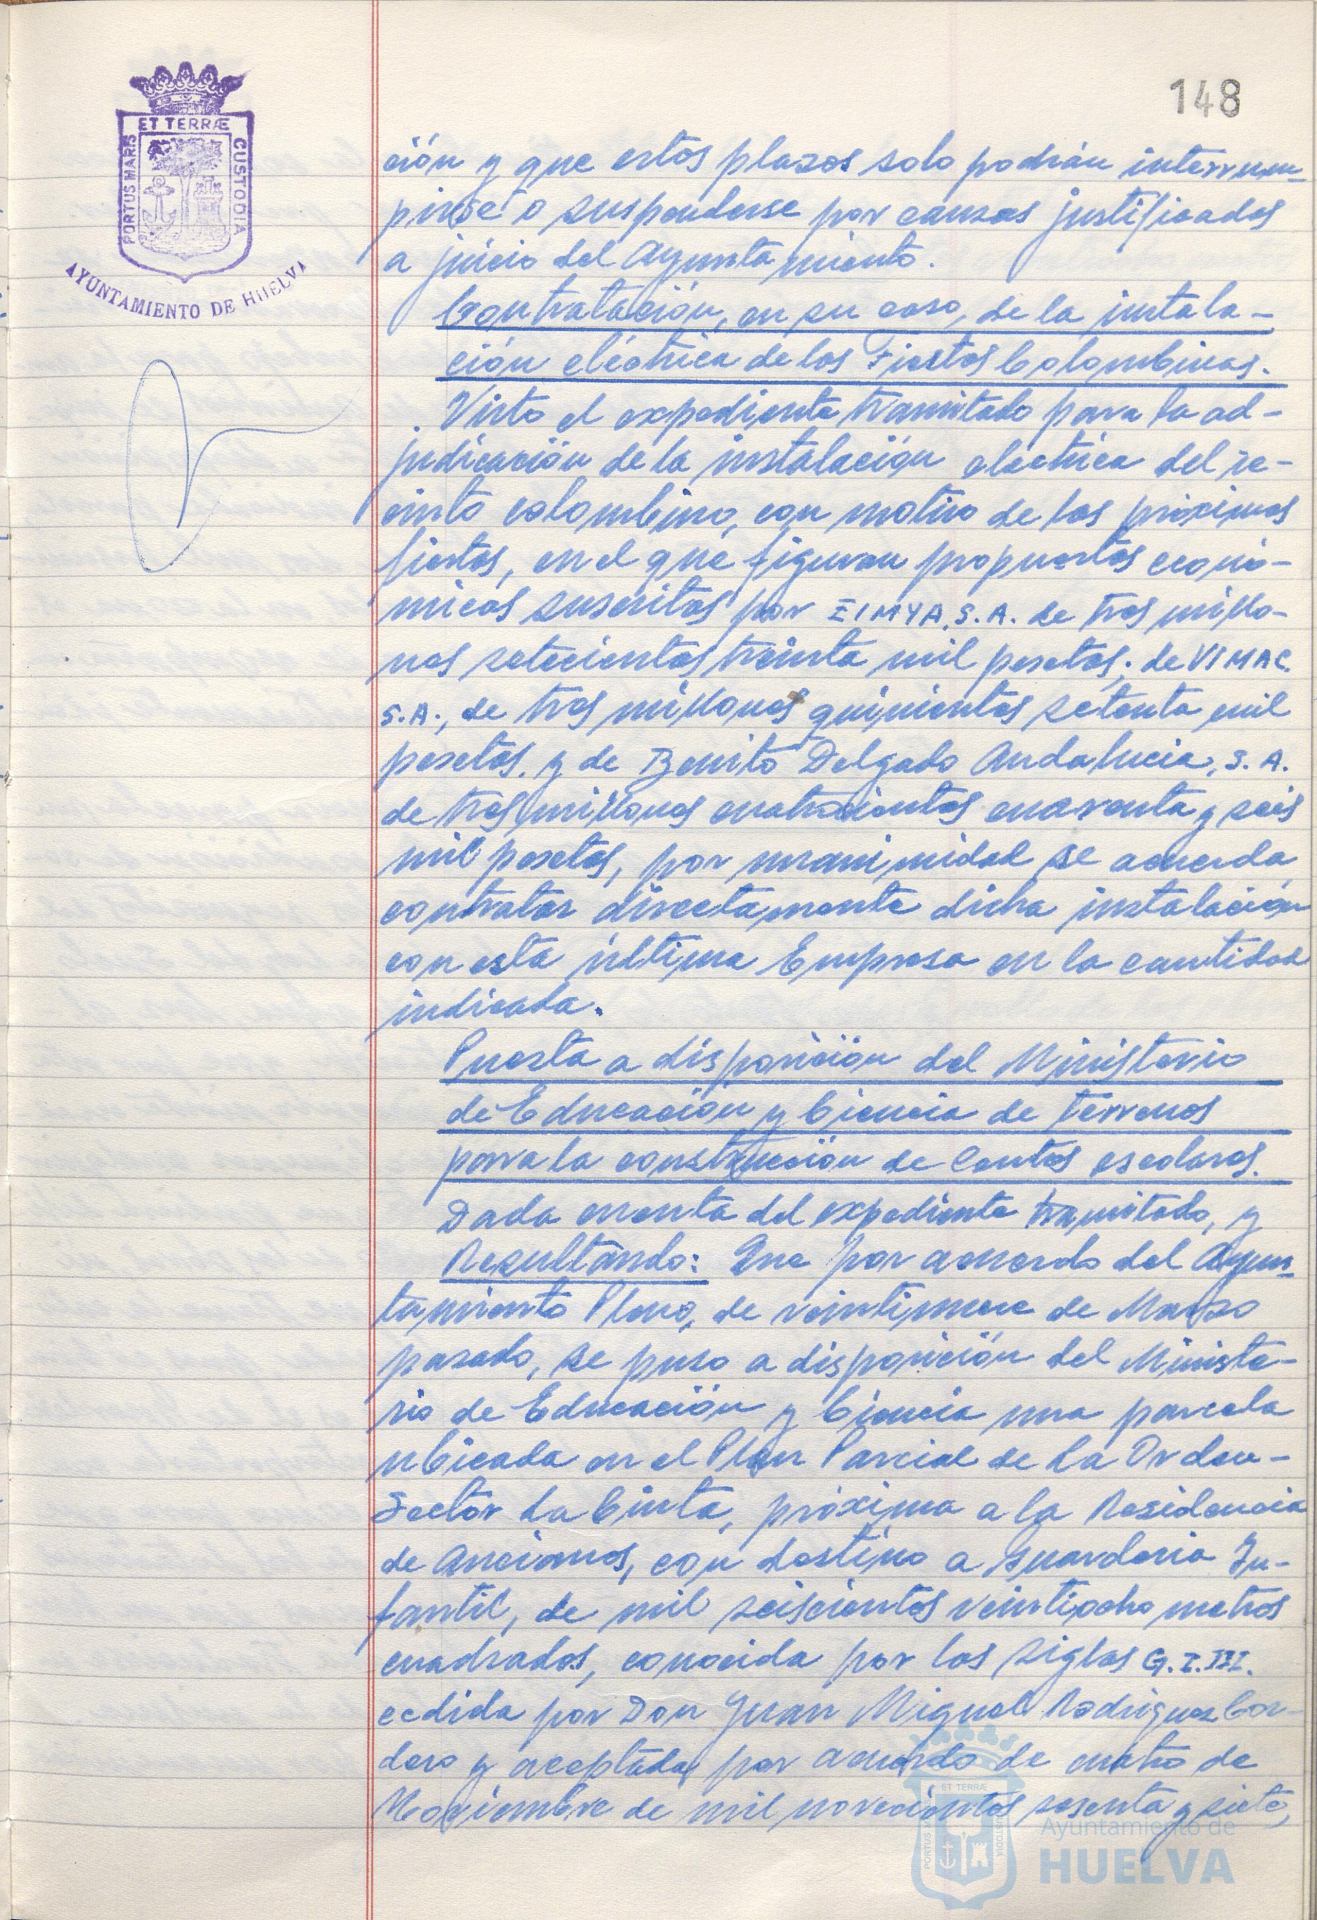 148
ET TERRÆ
PORTUS MARIS
CUSTODIA
AYUNTAMIENTO DE HUELVA
ción y que estos plazos solo podrán interrum-
pirse o suspenderse por causas justificadas
a juicio del Ayuntamiento.
Contratación, en su caso, de la instala-
ción eléctrica de las Fiestas Colombinas.
Visto el expediente tramitado para la ad-
judicación de la instalación electrica del re-
cinto colombino, con motivo de las próximas
fiestas, en el que figuran propuestas econó-
micas suscritas por EIMYA, S.A. de tres millo-
nes setecientas treinta mil pesetas; de VIMAC.
S.A., de tres millones quinientas setenta mil
pesetas, y de Benito Delgado Andalucia, S.A.
de tres millones cuatrocientas cuarenta y seis
mil pesetas, por unanimidad se acuerda
contratar directamente dicha instalación
con esta última Empresa en la cantidad
indicada.
Puesta a disposición del Ministerio
de Educación y Ciencia de terrenos
para la construcción de Centros escolares.
Dada cuenta del expediente tramitado, y
Resultando: Que por acuerdo del Ayun-
tamiento Pleno, de veintinueve de Marzo
pasado, se puso a disposición del Ministe-
rio de Educación y Ciencia una parcela
ubicada en el Plan Parcial de La Orden-
Sector La Cinta, próxima a la Residencia
de Ancianos, con destino a Guarderia In-
fantil, de mil seiscientos veintiocho metros
cuadrados, conocida por las siglas G.I.III.
cedida por Don Juan Miguel Rodriguez Cor-
dero y aceptada por acuerdo de cuatro de
Noviembre de mil novecientos sesenta y siete,
ET TERRÆ
Ayuntamiento de
HUELVA